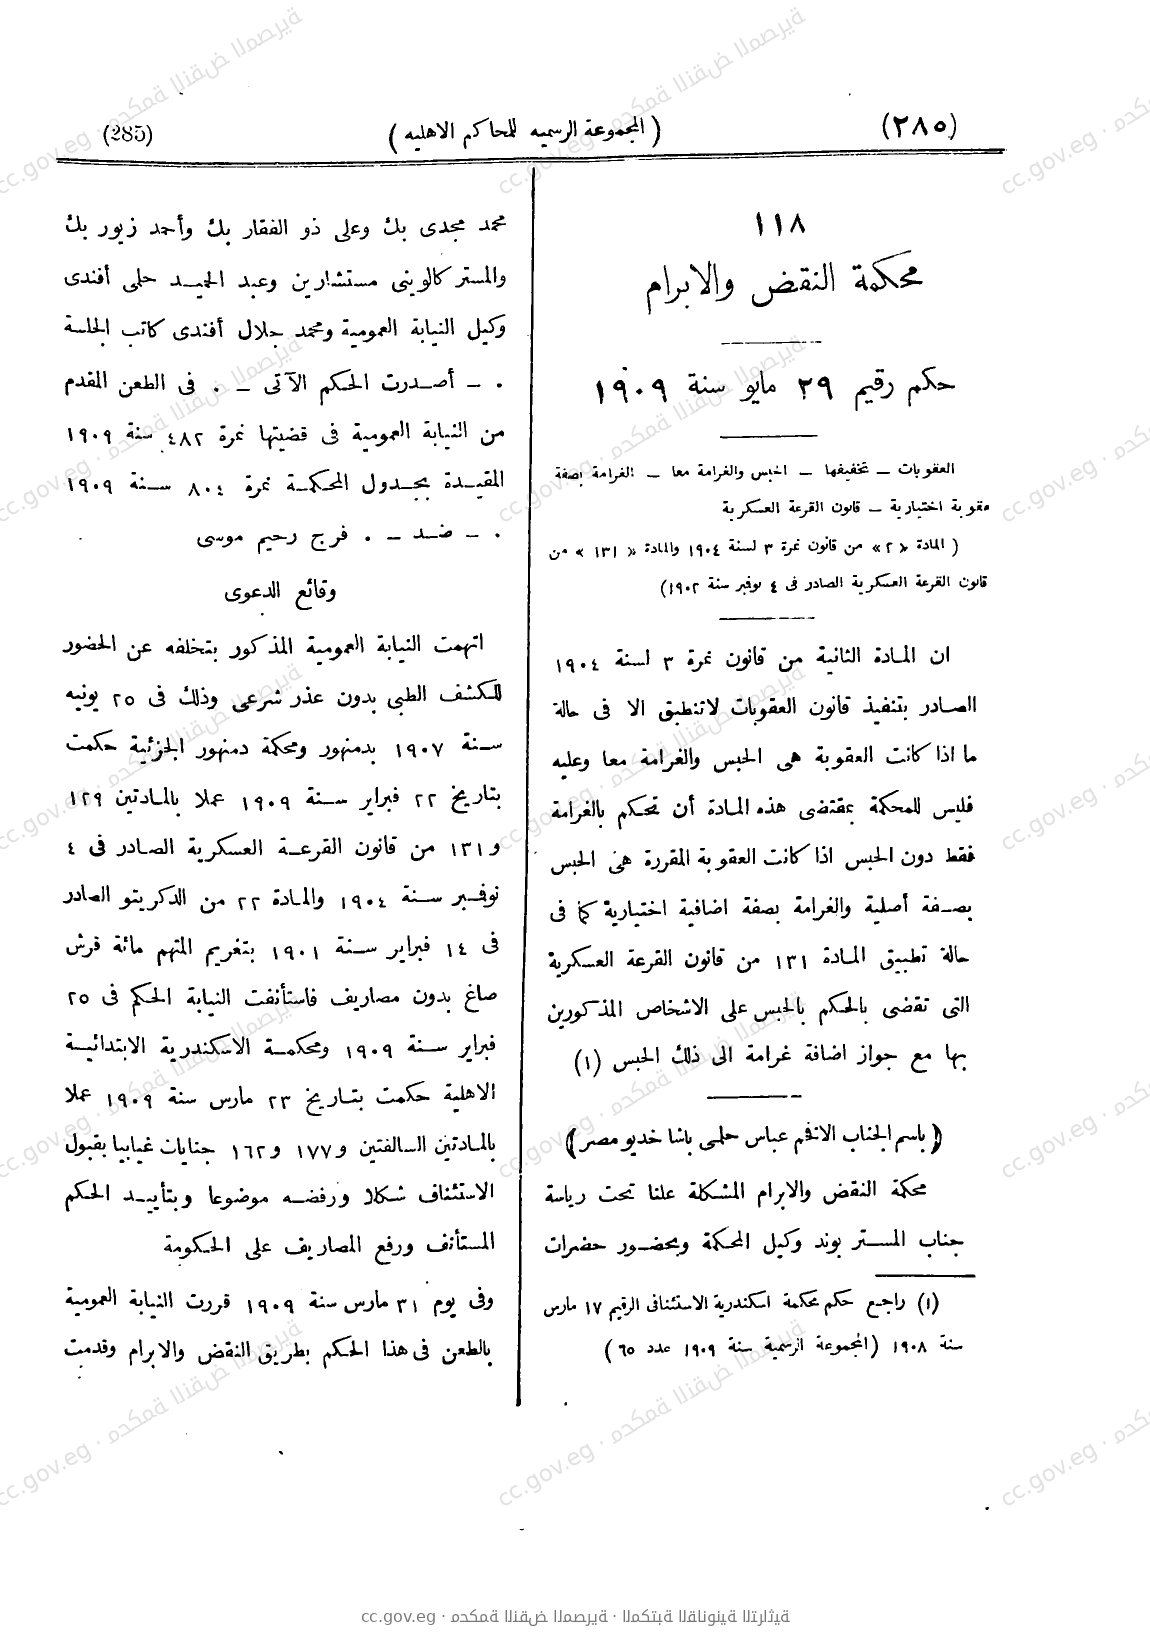 (٢٨٥)
(المجموعة الرسميه للمحاكم الاهليه)
(285)
١١٨
محكمة النقض والابرام
حكم رقيم ٢٩ مايو سنة ١٩٠٩
العقوبات ـ تخفيفها ـ الحبس والغرامة معا ـ الغرامة بصفة
عقوبة اختيارية ـ قانون القرعة العسكرية
( المادة «٢» من قانون نمرة ٣ لسنة ١٩٠٤ والمادة « ١٣١ » من
قانون القرعة العسكرية الصادر فى ٤ نوفمبر سنة ١٩٠٢)
ان المادة الثانية من قانون نمرة ٣ لسنة ١٩٠٤
الصادر بتنفيذ قانون العقوبات لاتنطبق الا فى حالة
ما اذا كانت العقوبة هى الحبس والغرامة معا وعليه
فليس للمحكمة بمقتضى هذه المادة أن تحكم بالغرامة
فقط دون الحبس اذا كانت العقوبة المقررة هى الحبس
بصفة أصلية والغرامة بصفة اضافية اختيارية كما فى
حالة تطبيق المادة ١٣١ من قانون القرعة العسكرية
التى تقضى بالحكم بالحبس على الاشخاص المذكورين
بها مع جواز اضافة غرامة الى ذلك الحبس (١)
(باسم الجناب الافخم عباس حلمى باشا خديو مصر)
محكمة النقض والابرام المشكلة علنا تحت رياسة
جناب المستر بوند وكيل المحكمة وبحضور حضرات
(١) راجع حكم محكمة اسكندرية الاستئنافى الرقيم ١٧ مارس
سنة ١٩٠٨ (المجموعة الرسمية سنة ١٩٠٩ عدد ٦٥)
محمد مجدى بك وعلى ذو الفقار بك وأحمد زيور بك
والمستر كالوينى مستشارين وعبد الحميد حلمى أفندى
وكيل النيابة العمومية ومحمد جلال أفندى كاتب الجلسة
. ـ أصدرت الحكم الآتى ـ . فى الطعن المقدم
من النيابة العمومية فى قضيتها نمرة ٤٨٢ سنة ١٩٠٩
المقيدة بجدول المحكمة نمرة ٨٠٤ سنة ١٩٠٩
. ـ ضد ـ . فرج رحيم موسى
وقائع الدعوى
اتهمت النيابة العمومية المذكور بتخلفه عن الحضور
للكشف الطبى بدون عذر شرعى وذلك فى ٢٥ يونيه
سنة ١٩٠٧ بدمنهور ومحكمة دمنهور الجزئية حكمت
بتاريخ ٢٢ فبراير سنة ١٩٠٩ عملا بالمادتين ١٢٩
و١٣١ من قانون القرعة العسكرية الصادر فى ٤
نوفمبر سنة ١٩٠٤ والمادة ٢٢ من الدكريتو الصادر
فى ١٤ فبراير سنة ١٩٠١ بتغريم المتهم مائة قرش
صاغ بدون مصاريف فاستأنفت النيابة الحكم فى ٢٥
فبراير سنة ١٩٠٩ ومحكمة الاسكندرية الابتدائية
الاهلية حكمت بتاريخ ٢٣ مارس سنة ١٩٠٩ عملا
بالمادتين السالفتين و١٧٧ و١٦٢ جنايات غيابيا بقبول
الاستئناف شكلا ورفضه موضوعا وبتأييد الحكم
المستأنف ورفع المصاريف على الحكومة
وفى يوم ٣١ مارس سنة ١٩٠٩ قررت النيابة العمومية
بالطعن فى هذا الحكم بطريق النقض والابرام وقدمت
cc.gov.eg · محكمة النقض المصرية · المكتبة القانونية التراثية